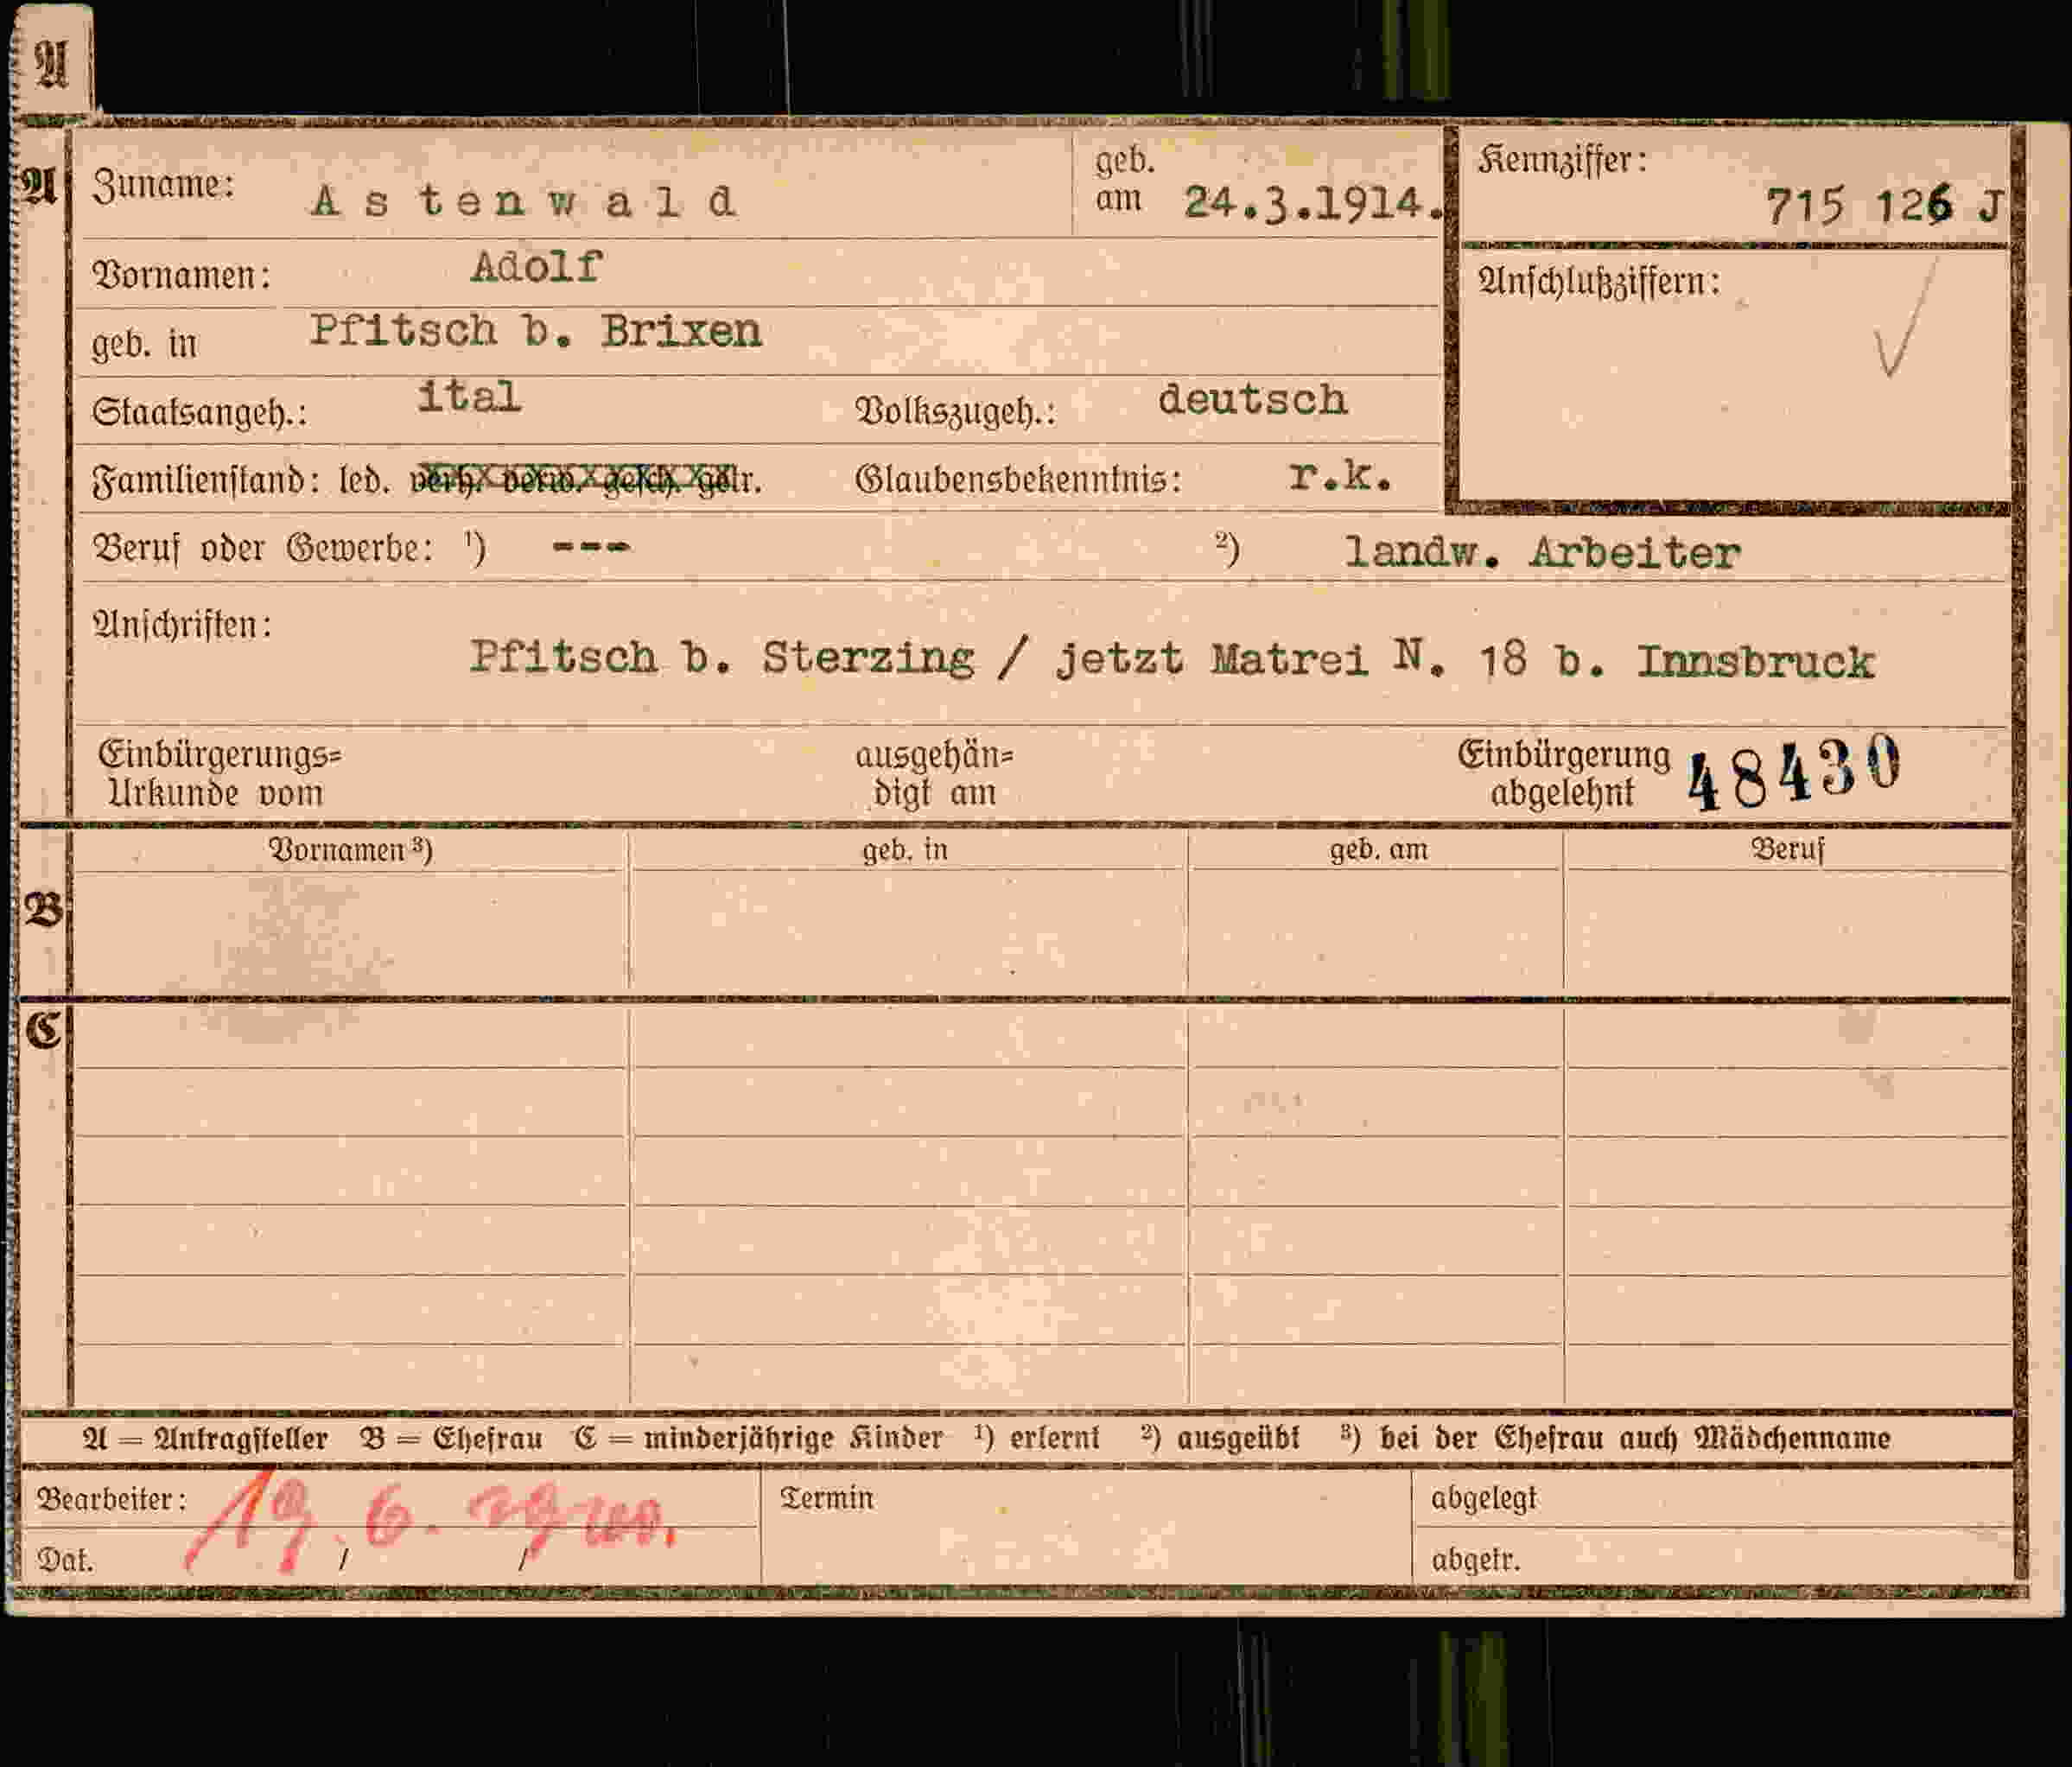 A
A Zuname: Astenwald geb. am 24.3.1914. Kennziffer: 715 126 J
Vornamen: Adolf Anschlußziffern:
geb. in Pfitsch b. Brixen
Staatsangeh.: ital Volkszugeh.: deutsch
Familienstand: led. verh. verw. gesch. getr. Glaubensbekenntnis: r.k.
Beruf oder Gewerbe: ¹) --- ²) landw. Arbeiter
Anschriften:
Pfitsch b. Sterzing / jetzt Matrei N. 18 b. Innsbruck
Einbürgerungs= ausgehän= Einbürgerung 48430
Urkunde vom digt am abgelehnt
Vornamen ³) geb. in geb. am Beruf
B
C
A = Antragsteller B = Ehefrau C = minderjährige Kinder ¹) erlernt ²) ausgeübt ³) bei der Ehefrau auch Mädchenname
Bearbeiter: 19. 6. Termin abgelegt
Dat. / / abgetr.